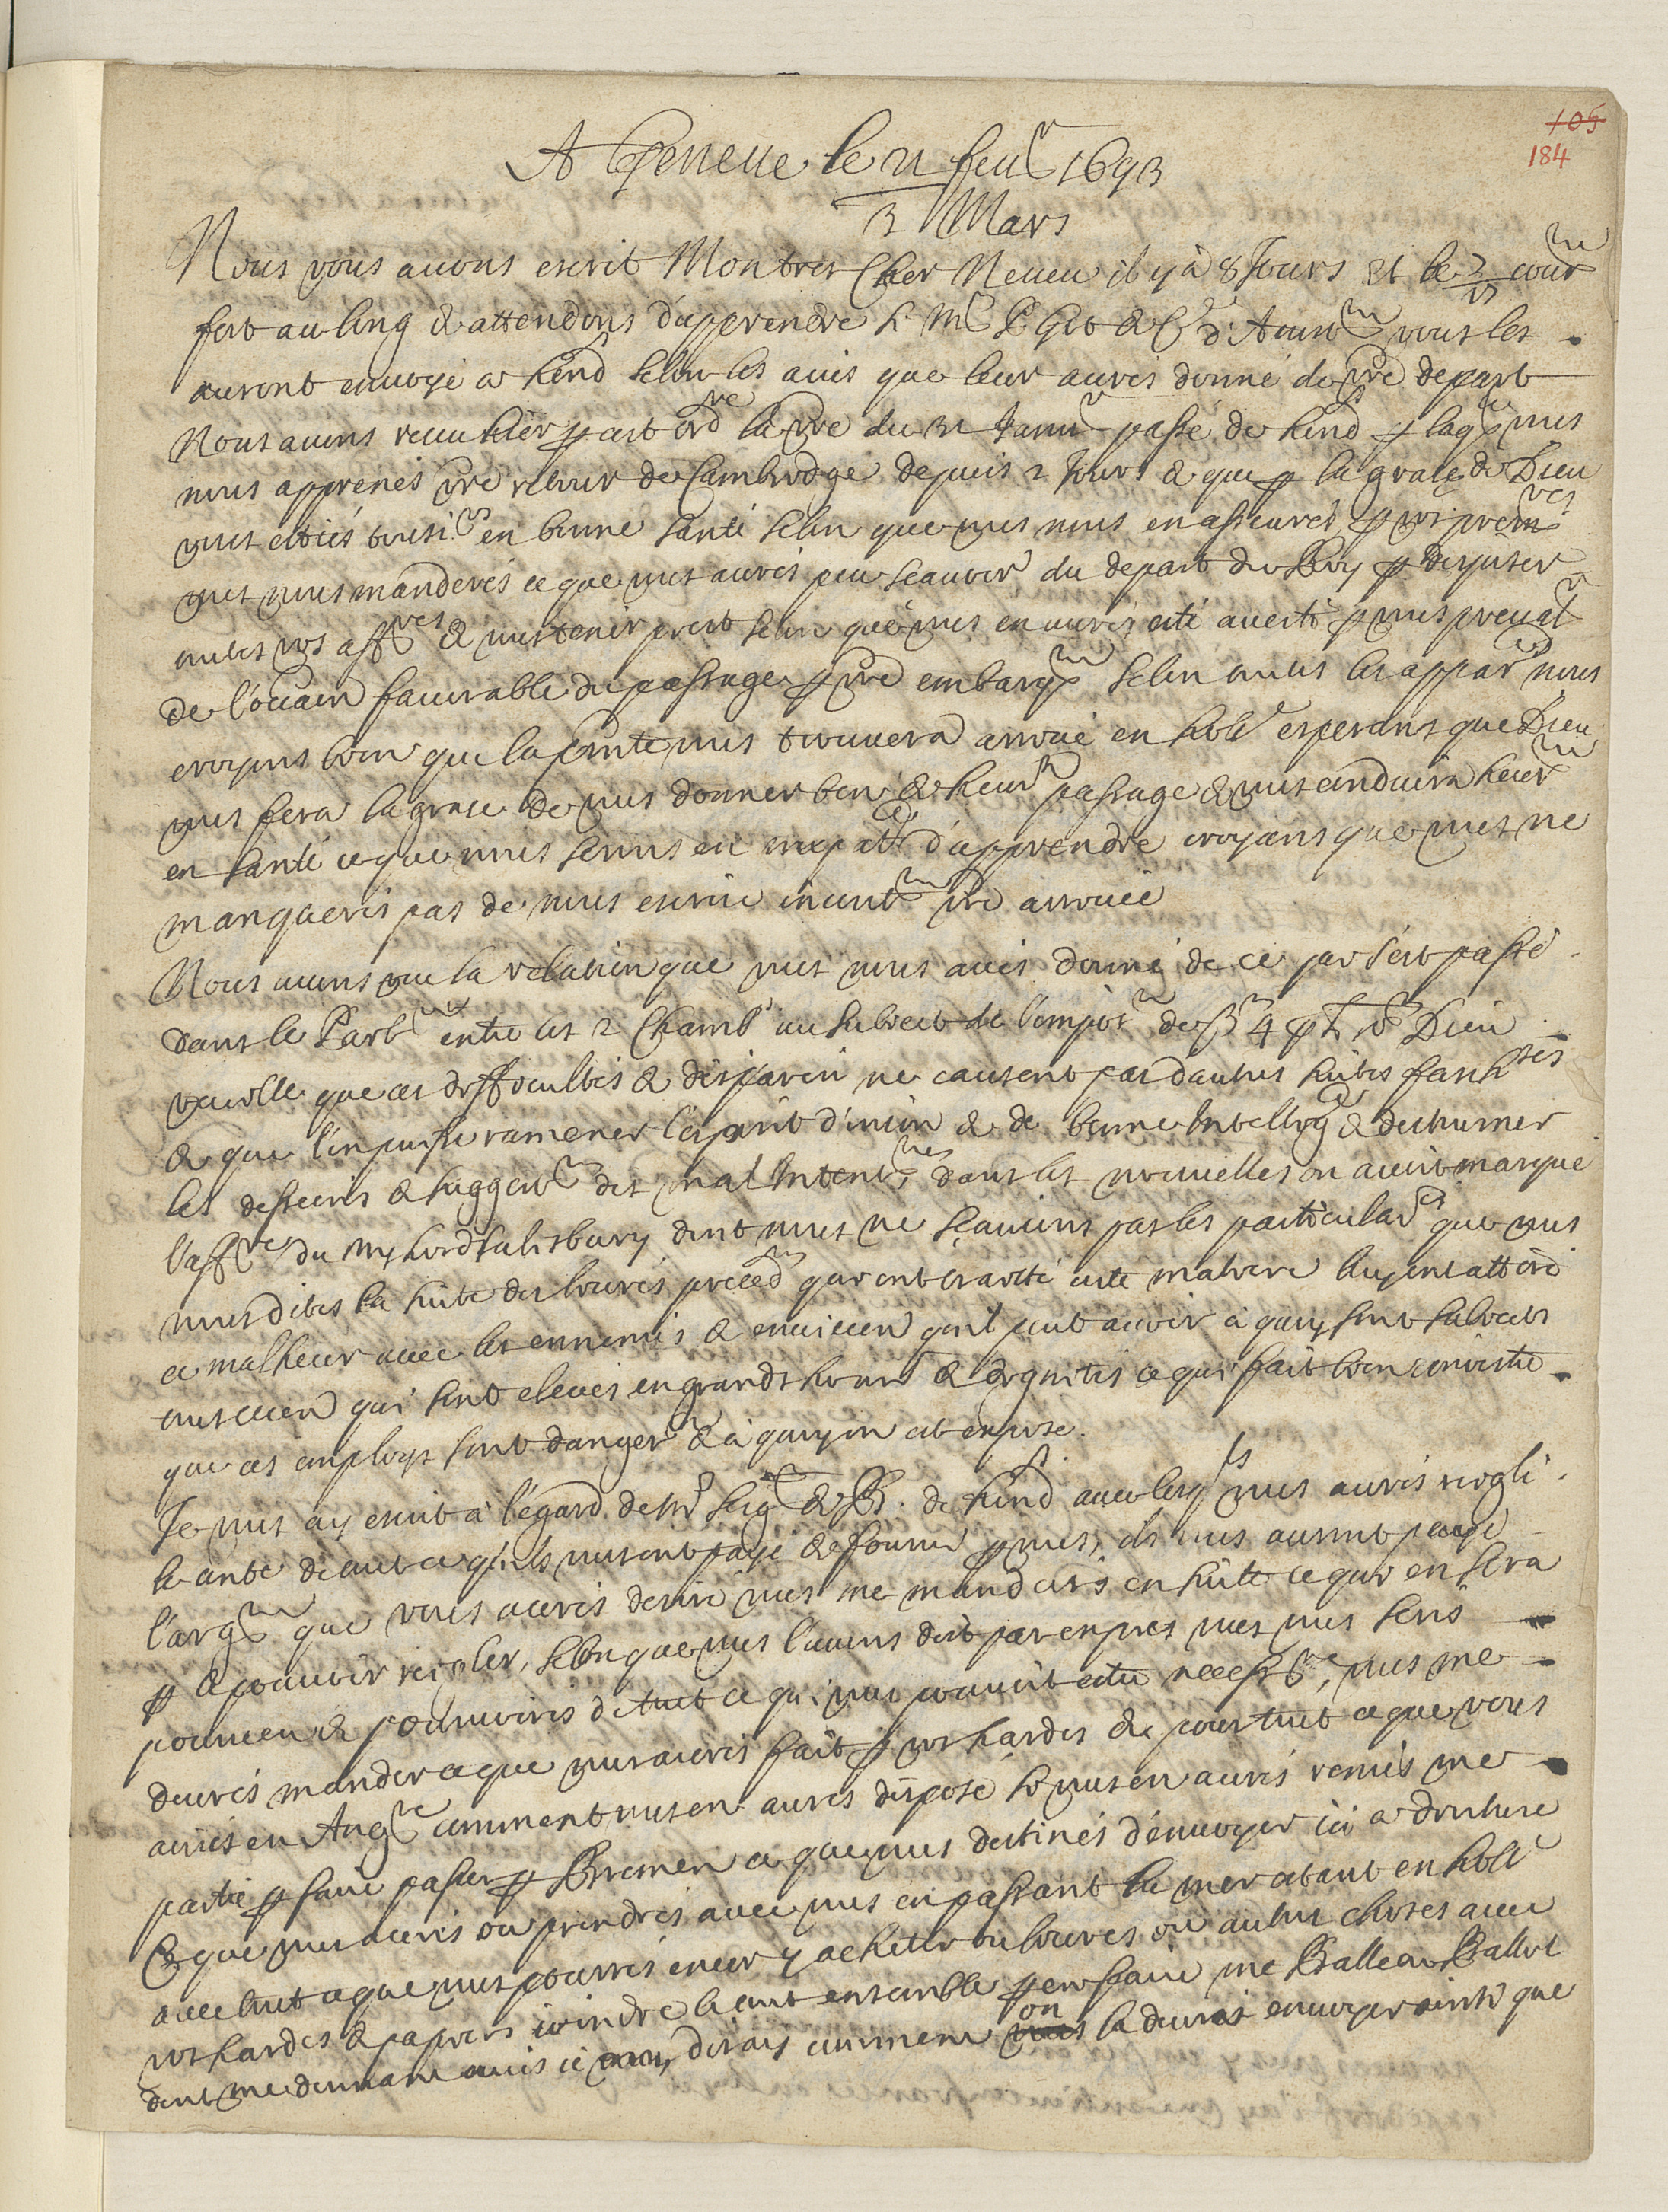 105
184
A Geneue le 21 feur 1693
3 Mars
Nous vous auons escrit Montres Cher Neueu il y à 8 Jours et le 7/17 cour
fort au long & attendons d'apprendre si Mrs P Got & Ce d'Amstm vous les
auront enuoyé a Lond selon les auis que leur aurés donné de vre depart
Nous auons receu hier p cest ordre la vre du 31 Janur passé de Lond p laqle vous
nous apprenés vre retour de Cambridge depuis 2 Jours & que p la grace de Dieu
vous estiés en bonne santé selon que vous nous en asseurés p vos premres
vous nous manderés ce que vous aurés peu scauoir du depart du Roy p disposer
toutes vos affres & vous tenir prest selon que vous en aurés esté auerti p vous preual
de l'ocaōn fauorable du passage p vre embarqmt selon toutes les appar nous
croyons bien que la pnte vous trouuera arriué en Hole esperans que Dieu
vous fera la grace de vous donner bon & heur passage & vous conduira heurmt
en santé ce que nous sommes en impatce d'apprendre croyans que vous ne
manquerés pas de nous escrire incontt vre arriuée
Nous auons veu la relation que vous nous aués donné de ce qui s'est passé
dans le Parlmt entre les 2 Chambs au subiect de l'impost de 4 p Dieu
veuille que ces difficultés & ne causent pas d'autres suites fasches
& que l'on puisse ramener l'esprit d'union & de bonne Intelligce & destourner
les desseins & suggestns des mal Intentnés, dans les nouuelles on auoit marqué
l'affre du My Lord Salisbury dont nous ne sçauions pas les particulares que vous
nous dites la suite des liures preced qui ont traitté cette matiere luy ont attiré
ce malheur auec les ennemis & enuieux qu'il peut auoir à quoy sont subiects
tous ceux qui sont eleués en grands honnrs & dignités ce qui fait bien cognoistre
que ces employs sont dangerx & à quoy on est exposé.
Je vous ay escrit à l'égard de Mrs Seig & B. de Lond auec lesqls vous aurés reiglé
le conte de tout ce qu'ils vous ont payé & fourni p vous, ils vous auront payé
l'argt que vous aurés desiré vous me manderés en suitte ce qui en sera
p le pouuoir reigler, selon que vous l'auons dit par expres vous vous serés
pourueu & pouruoirés de tout ce qui vous pouuoit estre necessre, vous me
deurés mander ce que vous aurés fait p vos hardes & pour tout ce que vous
auiés en Angre comment vous en aurés disposé si vous en aurés remis une
partie p faire passer p Bremen ce que vous destinés d'enuoyer ici a droiture
& que vous aurés ou prendrés auec vous en passant la mer estant en Hole
auec tout ce que vous pourrés encor y achetter ou liures ou autres choses auec
vos hardes & papiers ioindre le tout ensemble p en faire une Balle ou Ballot
dont me donnant auis ie dirais comment on la deura enuoyer ainsi que